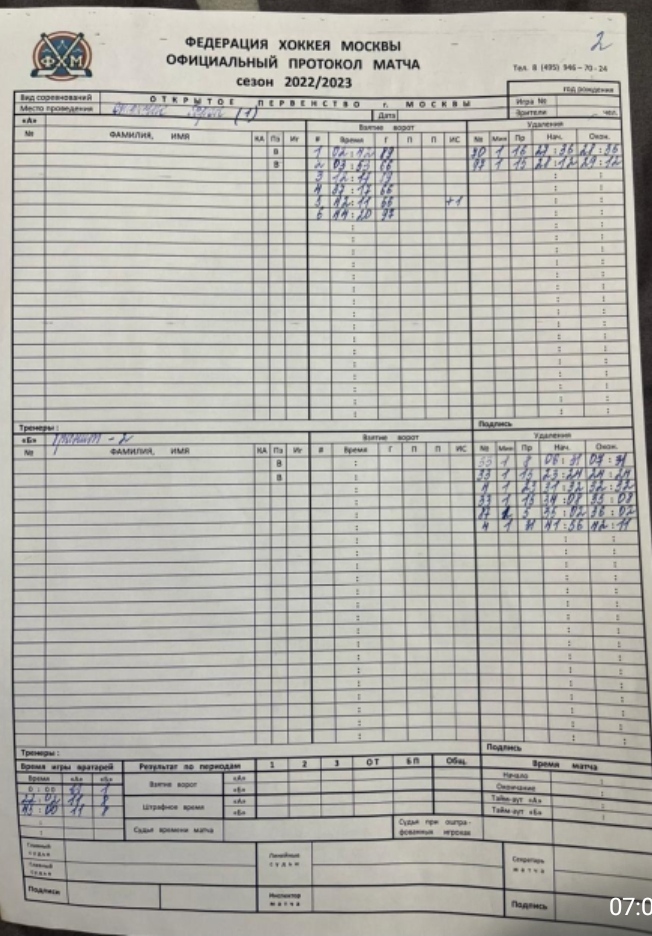 2
ФХМ
ФЕДЕРАЦИЯ ХОККЕЯ МОСКВЫ
ОФИЦИАЛЬНЫЙ ПРОТОКОЛ МАТЧА
сезон 2022/2023
Тел. 8 (495) 946-70-24
год рождения
Вид соревнований ОТКРЫТОЕ ПЕРВЕНСТВО г. МОСКВЫ Игра №
Место проведения (1) Дата Зрители чел.
«А» Взятие ворот Удаления
№ ФАМИЛИЯ, ИМЯ КА Пз Иг # Время Г П П ИС № Мин Пр Нач. Окон.
В 1 02:42 1 16 28:36
В 2 03:53 66 97 1 15 28:12 29:12
3 12:17 19
4 37:17 66
5 42:11 66 +1
6 44:20 97
Тренеры: Подпись
«Б» - 2 Взятие ворот Удаления
№ ФАМИЛИЯ, ИМЯ КА Пз Иг # Время Г П П ИС № Мин Пр Нач. Окон.
В : 33 1 8 06:31 07:31
В : 33 1 15 23:24 24:24
4 1 23 31:32 32:32
33 1 15 34:08 35:08
87 5 35:02 36:02
4 1 41:56 42:11
Тренеры: Подпись
Время игры вратарей Результат по периодам 1 2 3 ОТ БП Общ. Время матча
Время «А» «Б» Взятие ворот «А» Начало :
0:00 1 «Б» Окончание :
22:02 11 8 Штрафное время «А» Тайм-аут «А» :
45:00 11 8 «Б» Тайм-аут «Б» :
: Судья времени матча Судьи при оштрафованных игроках
Главный судья Линейные судьи Секретарь матча
Главный судья
Подписи Инспектор матча Подпись
07:0